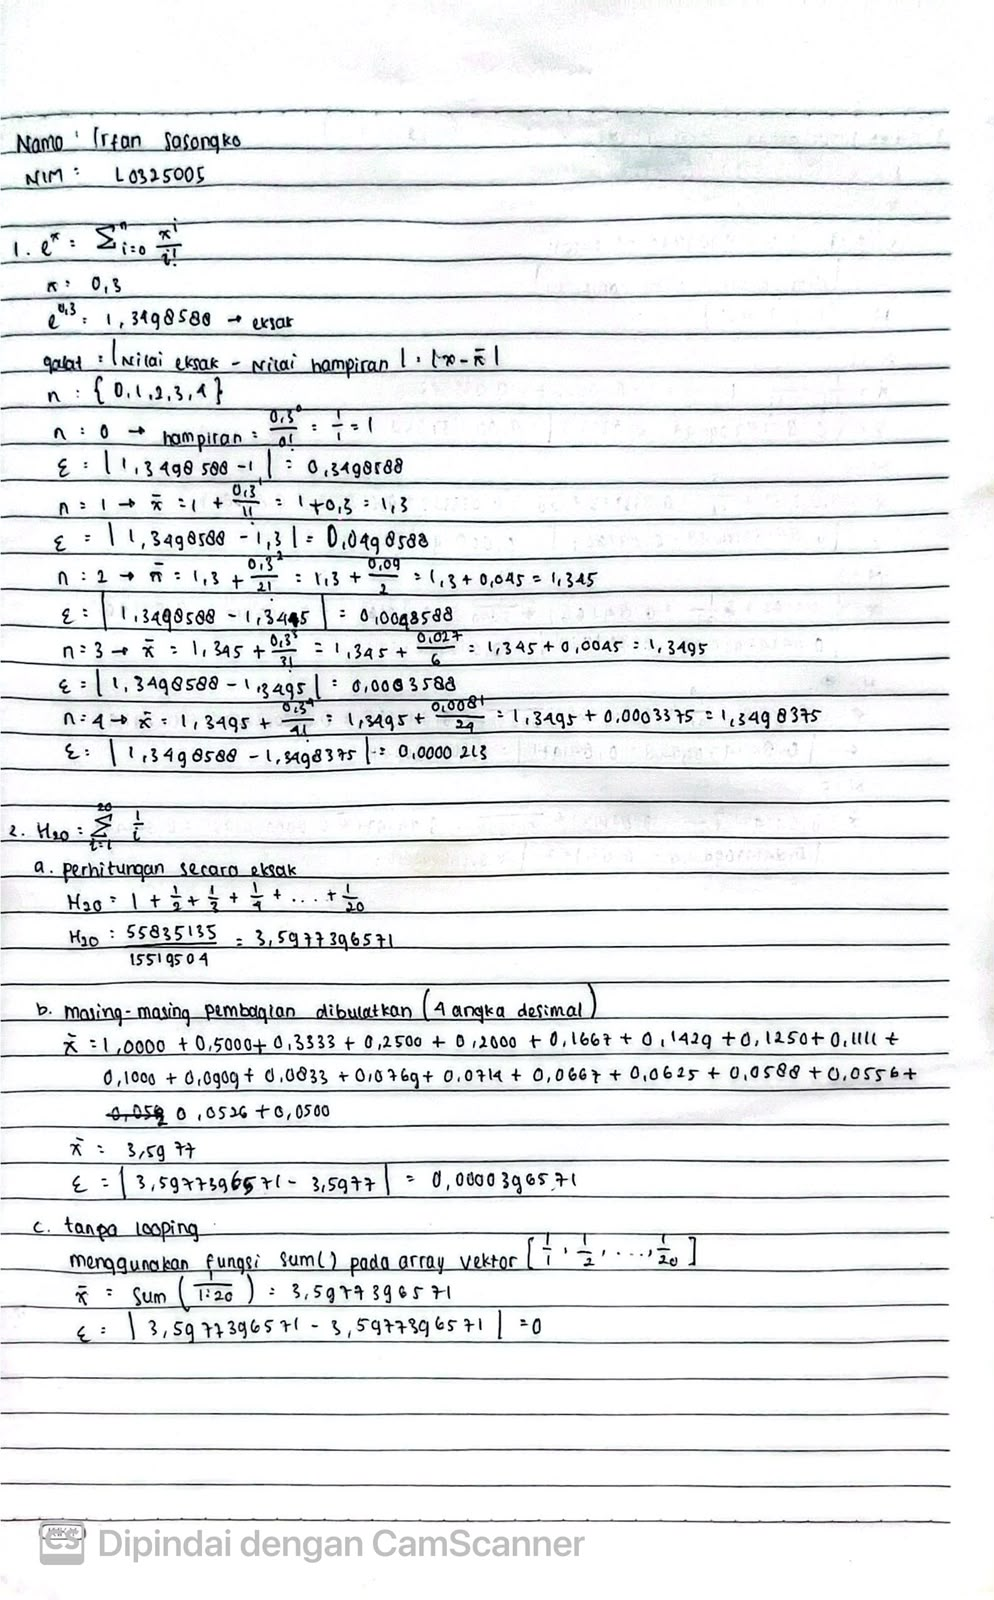 Nama : Irfan Sasongko
NIM : L0325005
1. e^x : Σ^n_{i=0} x^i/i!
x : 0,3
e^{0,3} : 1,3498588 → eksak
galat : |Nilai eksak - Nilai hampiran| : |x - x̄|
n : {0,1,2,3,4}
n : 0 → hampiran : 0,3^0/0! : 1/1 = 1
ε : |1,3498588 - 1| : 0,3498588
n : 1 → x̄ : 1 + 0,3^1/1! = 1+0,3 : 1,3
ε = |1,3498588 - 1,3| = 0,0498588
n : 2 → x̄ : 1,3 + 0,3^2/2! : 1,3 + 0,09/2 = 1,3 + 0,045 = 1,345
ε : |1,3498588 - 1,3445| = 0,0048588
n : 3 → x̄ = 1,345 + 0,3^3/3! = 1,345 + 0,027/6 = 1,345 + 0,0045 = 1,3495
ε = |1,3498588 - 1,3495| = 0,0003588
n : 4 → x̄ : 1,3495 + 0,3^4/4! : 1,3495 + 0,0081/24 = 1,3495 + 0,0003375 = 1,3498375
ε : |1,3498588 - 1,3498375| = 0,0000213
2. H20 : Σ^20_{i=1} 1/i
a. perhitungan secara eksak
H20 = 1 + 1/2 + 1/3 + 1/4 + ... + 1/20
H20 : 55835135/15519504 = 3,5977396571
b. masing-masing pembagian dibulatkan (4 angka desimal)
x̄ = 1,0000 + 0,5000 + 0,3333 + 0,2500 + 0,2000 + 0,1667 + 0,1429 + 0,1250 + 0,1111 +
0,1000 + 0,0909 + 0,0833 + 0,0769 + 0,0714 + 0,0667 + 0,0625 + 0,0588 + 0,0556 +
0,0526 + 0,0500
x̄ = 3,5977
ε = |3,5977396571 - 3,5977| = 0,0000396571
c. tanpa looping
menggunakan fungsi sum() pada array vektor [1/1, 1/2, ..., 1/20]
x̄ = sum (1/1:20) = 3,5977396571
ε = |3,5977396571 - 3,5977396571| = 0
CS Dipindai dengan CamScanner